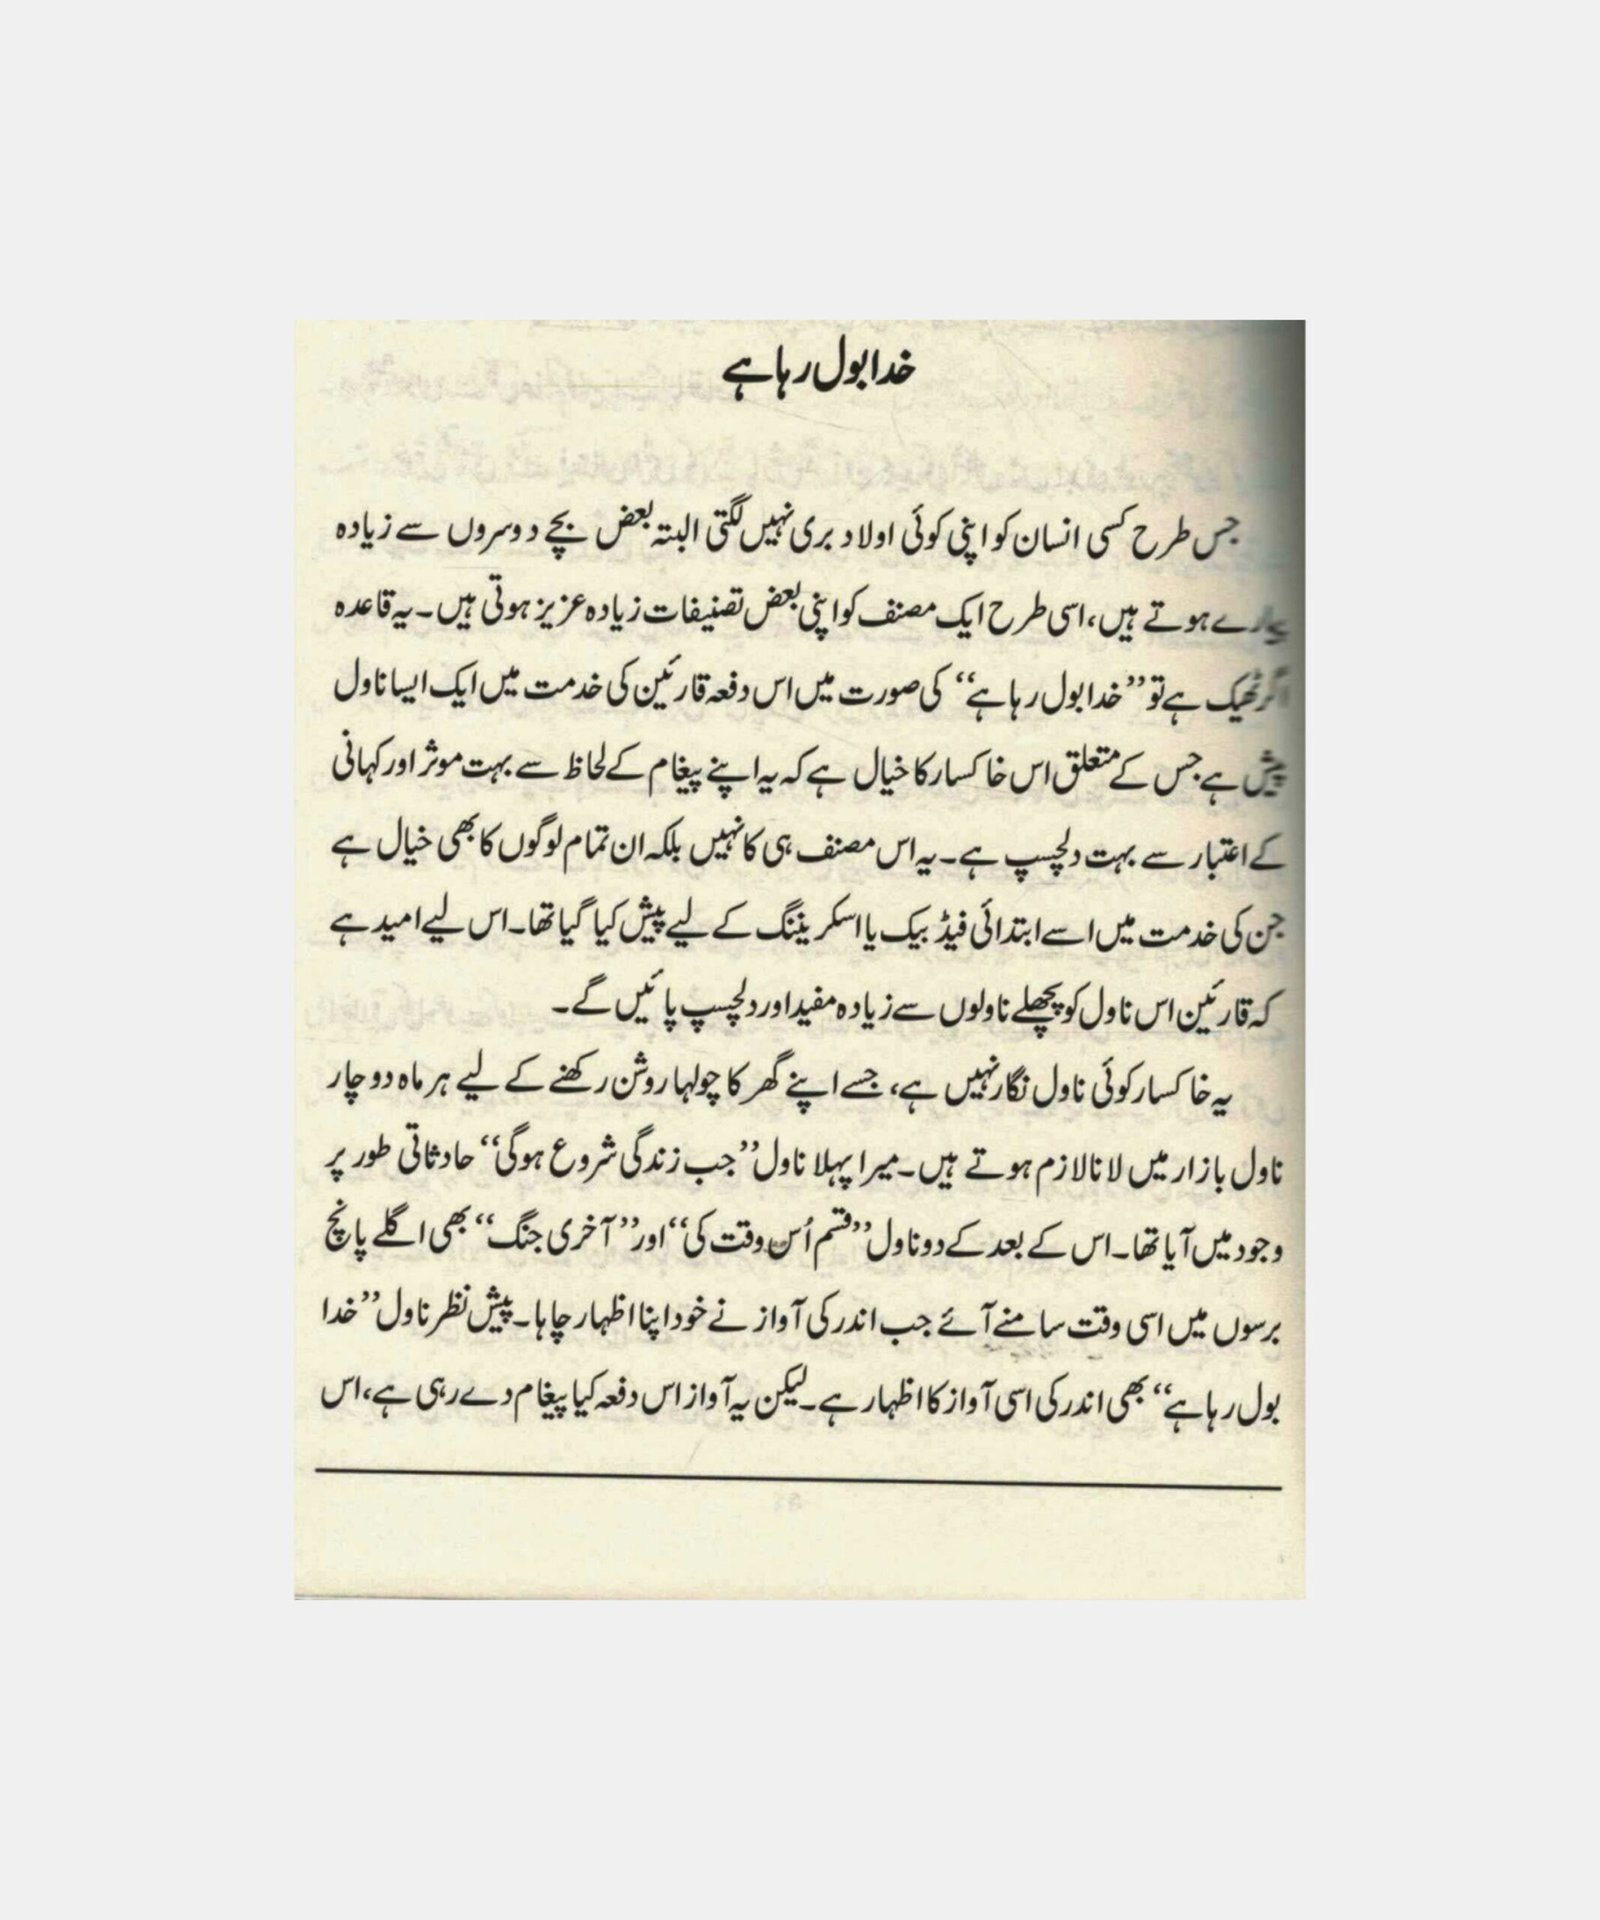 خدا بول رہا ہے
جس طرح کسی انسان کو اپنی کوئی اولاد بری نہیں لگتی البتہ بعض بچے دوسروں سے زیادہ
پیارے ہوتے ہیں، اسی طرح ایک مصنف کو اپنی بعض تصنیفات زیادہ عزیز ہوتی ہیں۔ یہ قاعدہ
اگر ٹھیک ہے تو ’’خدا بول رہا ہے‘‘ کی صورت میں اس دفعہ قارئین کی خدمت میں ایک ایسا ناول
پیش ہے جس کے متعلق اس خاکسار کا خیال ہے کہ یہ اپنے پیغام کے لحاظ سے بہت موثر اور کہانی
کے اعتبار سے بہت دلچسپ ہے۔ یہ اس مصنف ہی کا نہیں بلکہ ان تمام لوگوں کا بھی خیال ہے
جن کی خدمت میں اسے ابتدائی فیڈ بیک یا اسکریننگ کے لیے پیش کیا گیا تھا۔ اس لیے امید ہے
کہ قارئین اس ناول کو پچھلے ناولوں سے زیادہ مفید اور دلچسپ پائیں گے۔
یہ خاکسار کوئی ناول نگار نہیں ہے، جسے اپنے گھر کا چولہا روشن رکھنے کے لیے ہر ماہ دو چار
ناول بازار میں لانا لازم ہوتے ہیں۔ میرا پہلا ناول ’’جب زندگی شروع ہوگی‘‘ حادثاتی طور پر
وجود میں آیا تھا۔ اس کے بعد کے دو ناول ’’قسم اُس وقت کی‘‘ اور ’’آخری جنگ‘‘ بھی اگلے پانچ
برسوں میں اسی وقت سامنے آئے جب اندر کی آواز نے خود اپنا اظہار چاہا۔ پیش نظر ناول ’’خدا
بول رہا ہے‘‘ بھی اندر کی اسی آواز کا اظہار ہے۔ لیکن یہ آواز اس دفعہ کیا پیغام دے رہی ہے، اس